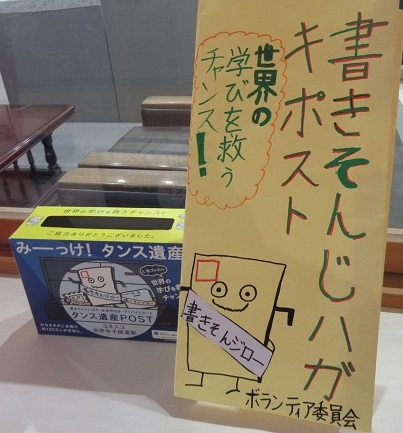 書きそんじハガ
キポスト
世界の
学びを救う
チャンス!
書きそんジロー
ボランティア委員会
世界の学びを救うチャンス!
ご協力ありがとうございました。
みーっけ! タンス遺産
世界の
学びを救う
チャン
書きそんジロー
タンス遺産POST
ユネスコ
世界寺子屋運動